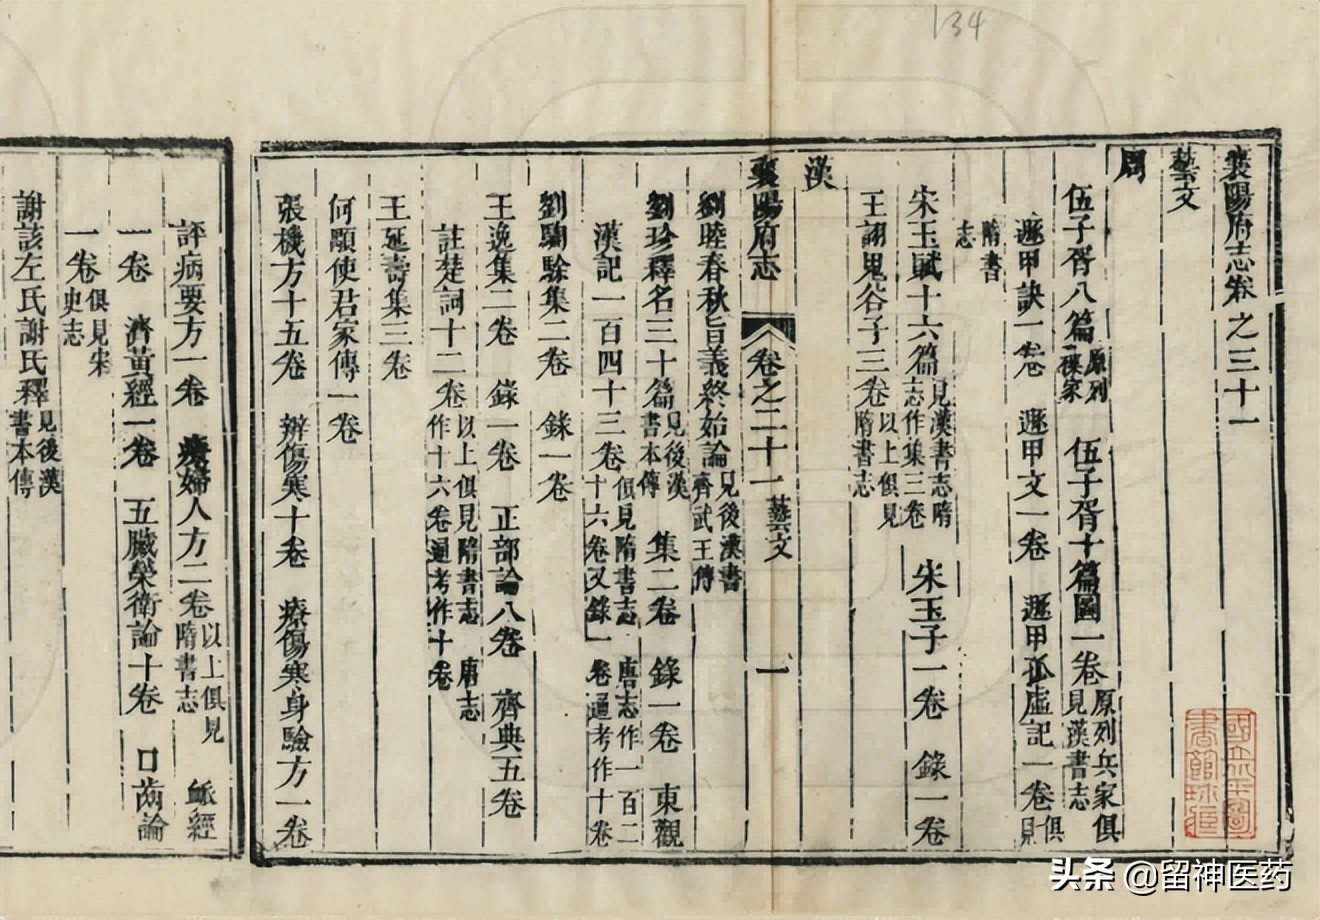 134
襄陽府志卷之三十一
藝文
周
伍子胥八篇原列雜家 伍子胥十篇圖一卷原列兵家俱見漢書志
遯甲訣一卷 遯甲文一卷 遯甲孤虛記一卷俱見
隋書志
宋玉賦十六篇見漢書志隋志作集三卷 宋玉子一卷 錄一卷
王詡鬼谷子三卷以上俱見隋書志
漢
襄陽府志 卷之三十一 藝文 一
劉睦春秋旨義終始論見後漢書齊武王傳
劉珍釋名三十篇見後漢書本傳 集二卷 錄一卷 東觀
漢記一百四十三卷俱見隋書志 唐志作一百二十六卷又錄一卷通考作十卷
劉騊駼集二卷 錄一卷
王逸集二卷 錄一卷 正部論八卷 齊典五卷
註楚詞十二卷以上俱見隋書志 唐志作十六卷通考作十卷
王延壽集三卷
何顒使君家傳一卷
張機方十五卷 辨傷寒十卷 療傷寒身驗方一卷
評病要方一卷 療婦人方二卷以上俱見隋書志 脈經
一卷 濟黃經一卷 五臟榮衛論十卷 口齒論
一卷俱見宋史志
謝該左氏謝氏釋見後漢書本傳
頭条 @留神医药